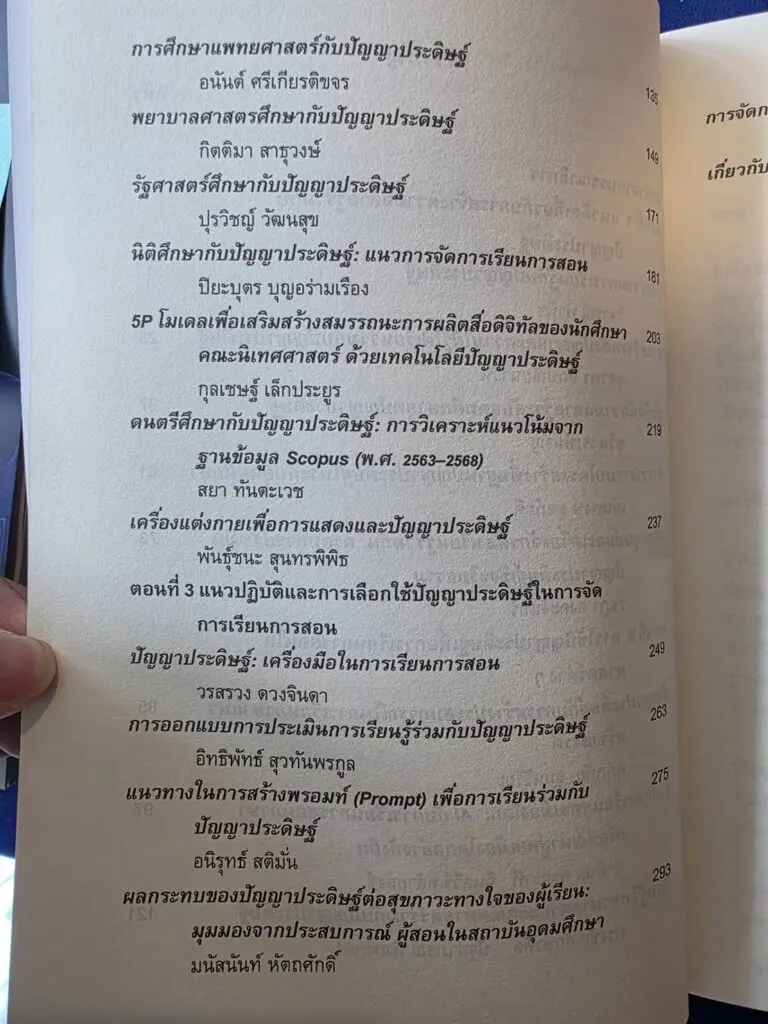 การศึกษาแพทยศาสตร์กับปัญญาประดิษฐ์ 135
อนันต์ ศรีเกียรติขจร
พยาบาลศาสตรศึกษากับปัญญาประดิษฐ์ 149
กิตติมา สาธุวงษ์
รัฐศาสตร์ศึกษากับปัญญาประดิษฐ์ 171
ปุรวิชญ์ วัฒนสุข
นิติศึกษากับปัญญาประดิษฐ์: แนวการจัดการเรียนการสอน 181
ปิยะบุตร บุญอร่ามเรือง
5P โมเดลเพื่อเสริมสร้างสมรรถนะการผลิตสื่อดิจิทัลของนักศึกษา 203
คณะนิเทศศาสตร์ ด้วยเทคโนโลยีปัญญาประดิษฐ์
กุลเชษฐ์ เล็กประยูร
ดนตรีศึกษากับปัญญาประดิษฐ์: การวิเคราะห์แนวโน้มจาก 219
ฐานข้อมูล Scopus (พ.ศ. 2563–2568)
สยา ทันตะเวช
เครื่องแต่งกายเพื่อการแสดงและปัญญาประดิษฐ์ 237
พันธุ์ชนะ สุนทรพิพิธ
ตอนที่ 3 แนวปฏิบัติและการเลือกใช้ปัญญาประดิษฐ์ในการจัด
การเรียนการสอน
ปัญญาประดิษฐ์: เครื่องมือในการเรียนการสอน 249
วรสรวง ดวงจินดา
การออกแบบการประเมินการเรียนรู้ร่วมกับปัญญาประดิษฐ์ 263
อิทธิพัทธ์ สุวทันพรกูล
แนวทางในการสร้างพรอมท์ (Prompt) เพื่อการเรียนร่วมกับ 275
ปัญญาประดิษฐ์
อนิรุทธ์ สติมั่น
ผลกระทบของปัญญาประดิษฐ์ต่อสุขภาวะทางใจของผู้เรียน: 293
มุมมองจากประสบการณ์ ผู้สอนในสถาบันอุดมศึกษา
มนัสนันท์ หัตถศักดิ์
การจัดก
เกี่ยวกับ